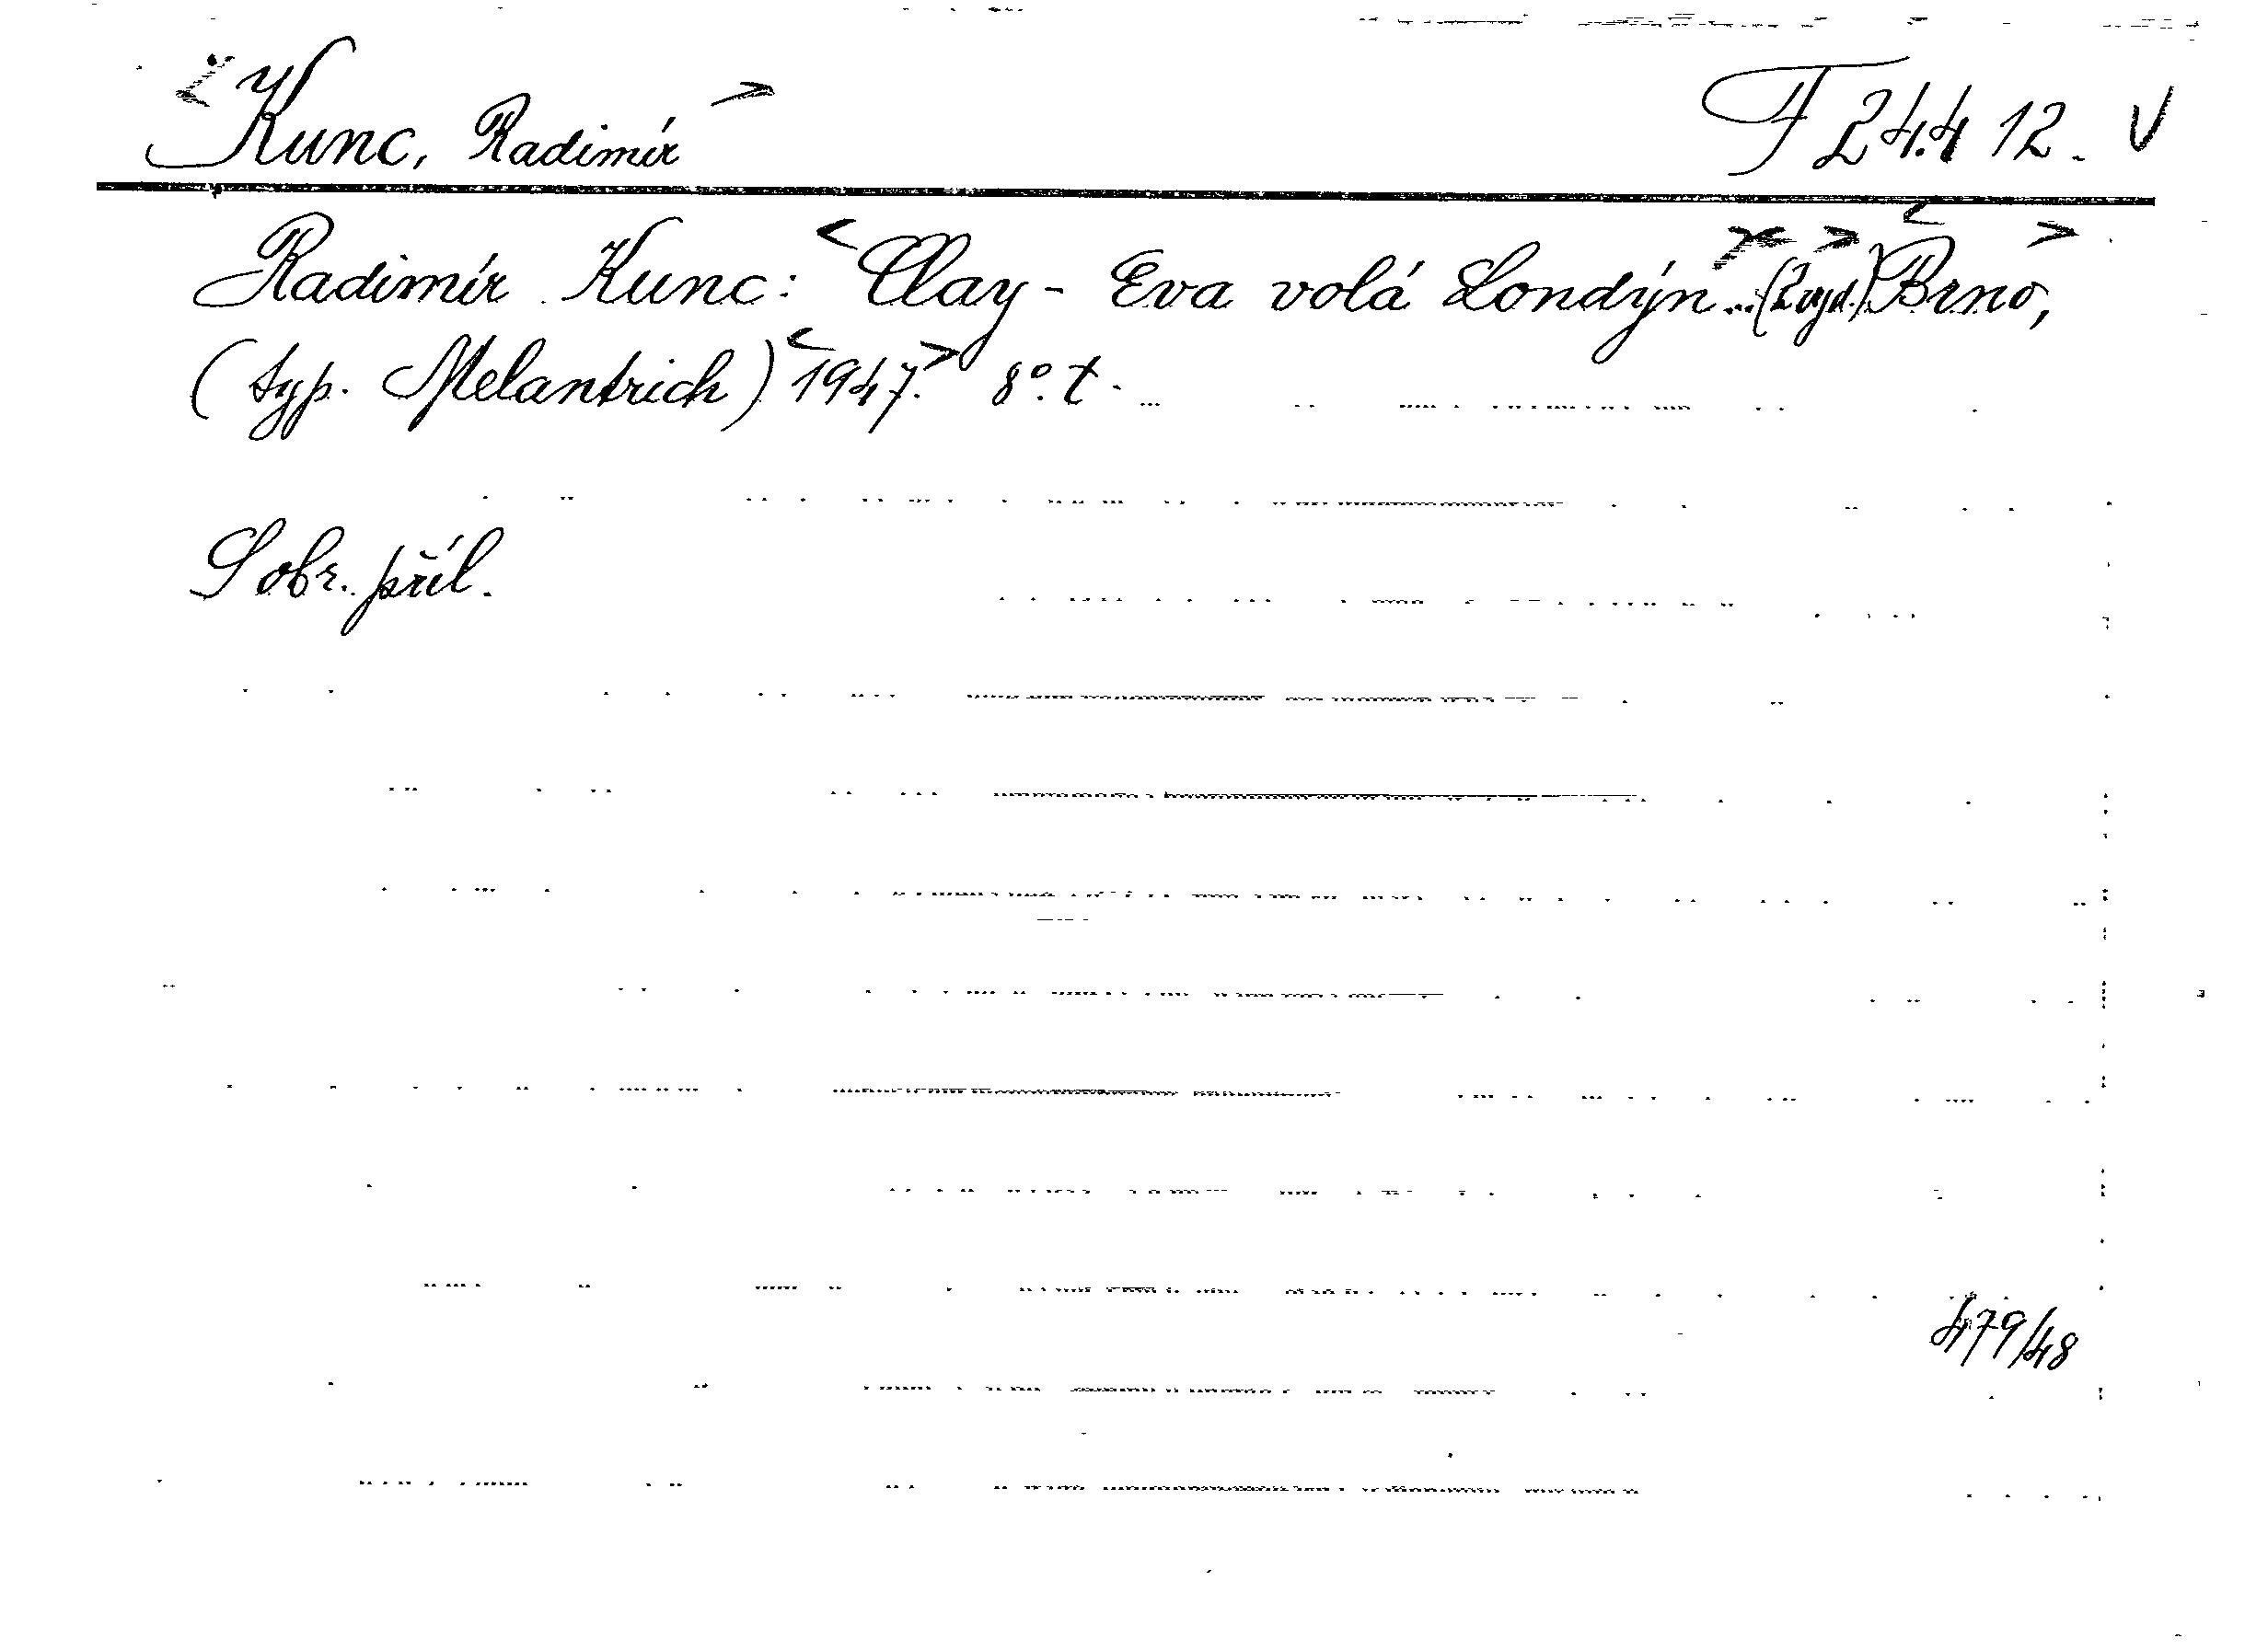 <Kunc, Radimír> F 24.412. V
Radimír Kunc: <Clay - Eva volá Londýn...> (2 vyd.) <Brno,>
(typ. Melantrich) <1947.> 8°. t.
S obr. příl.
479/48